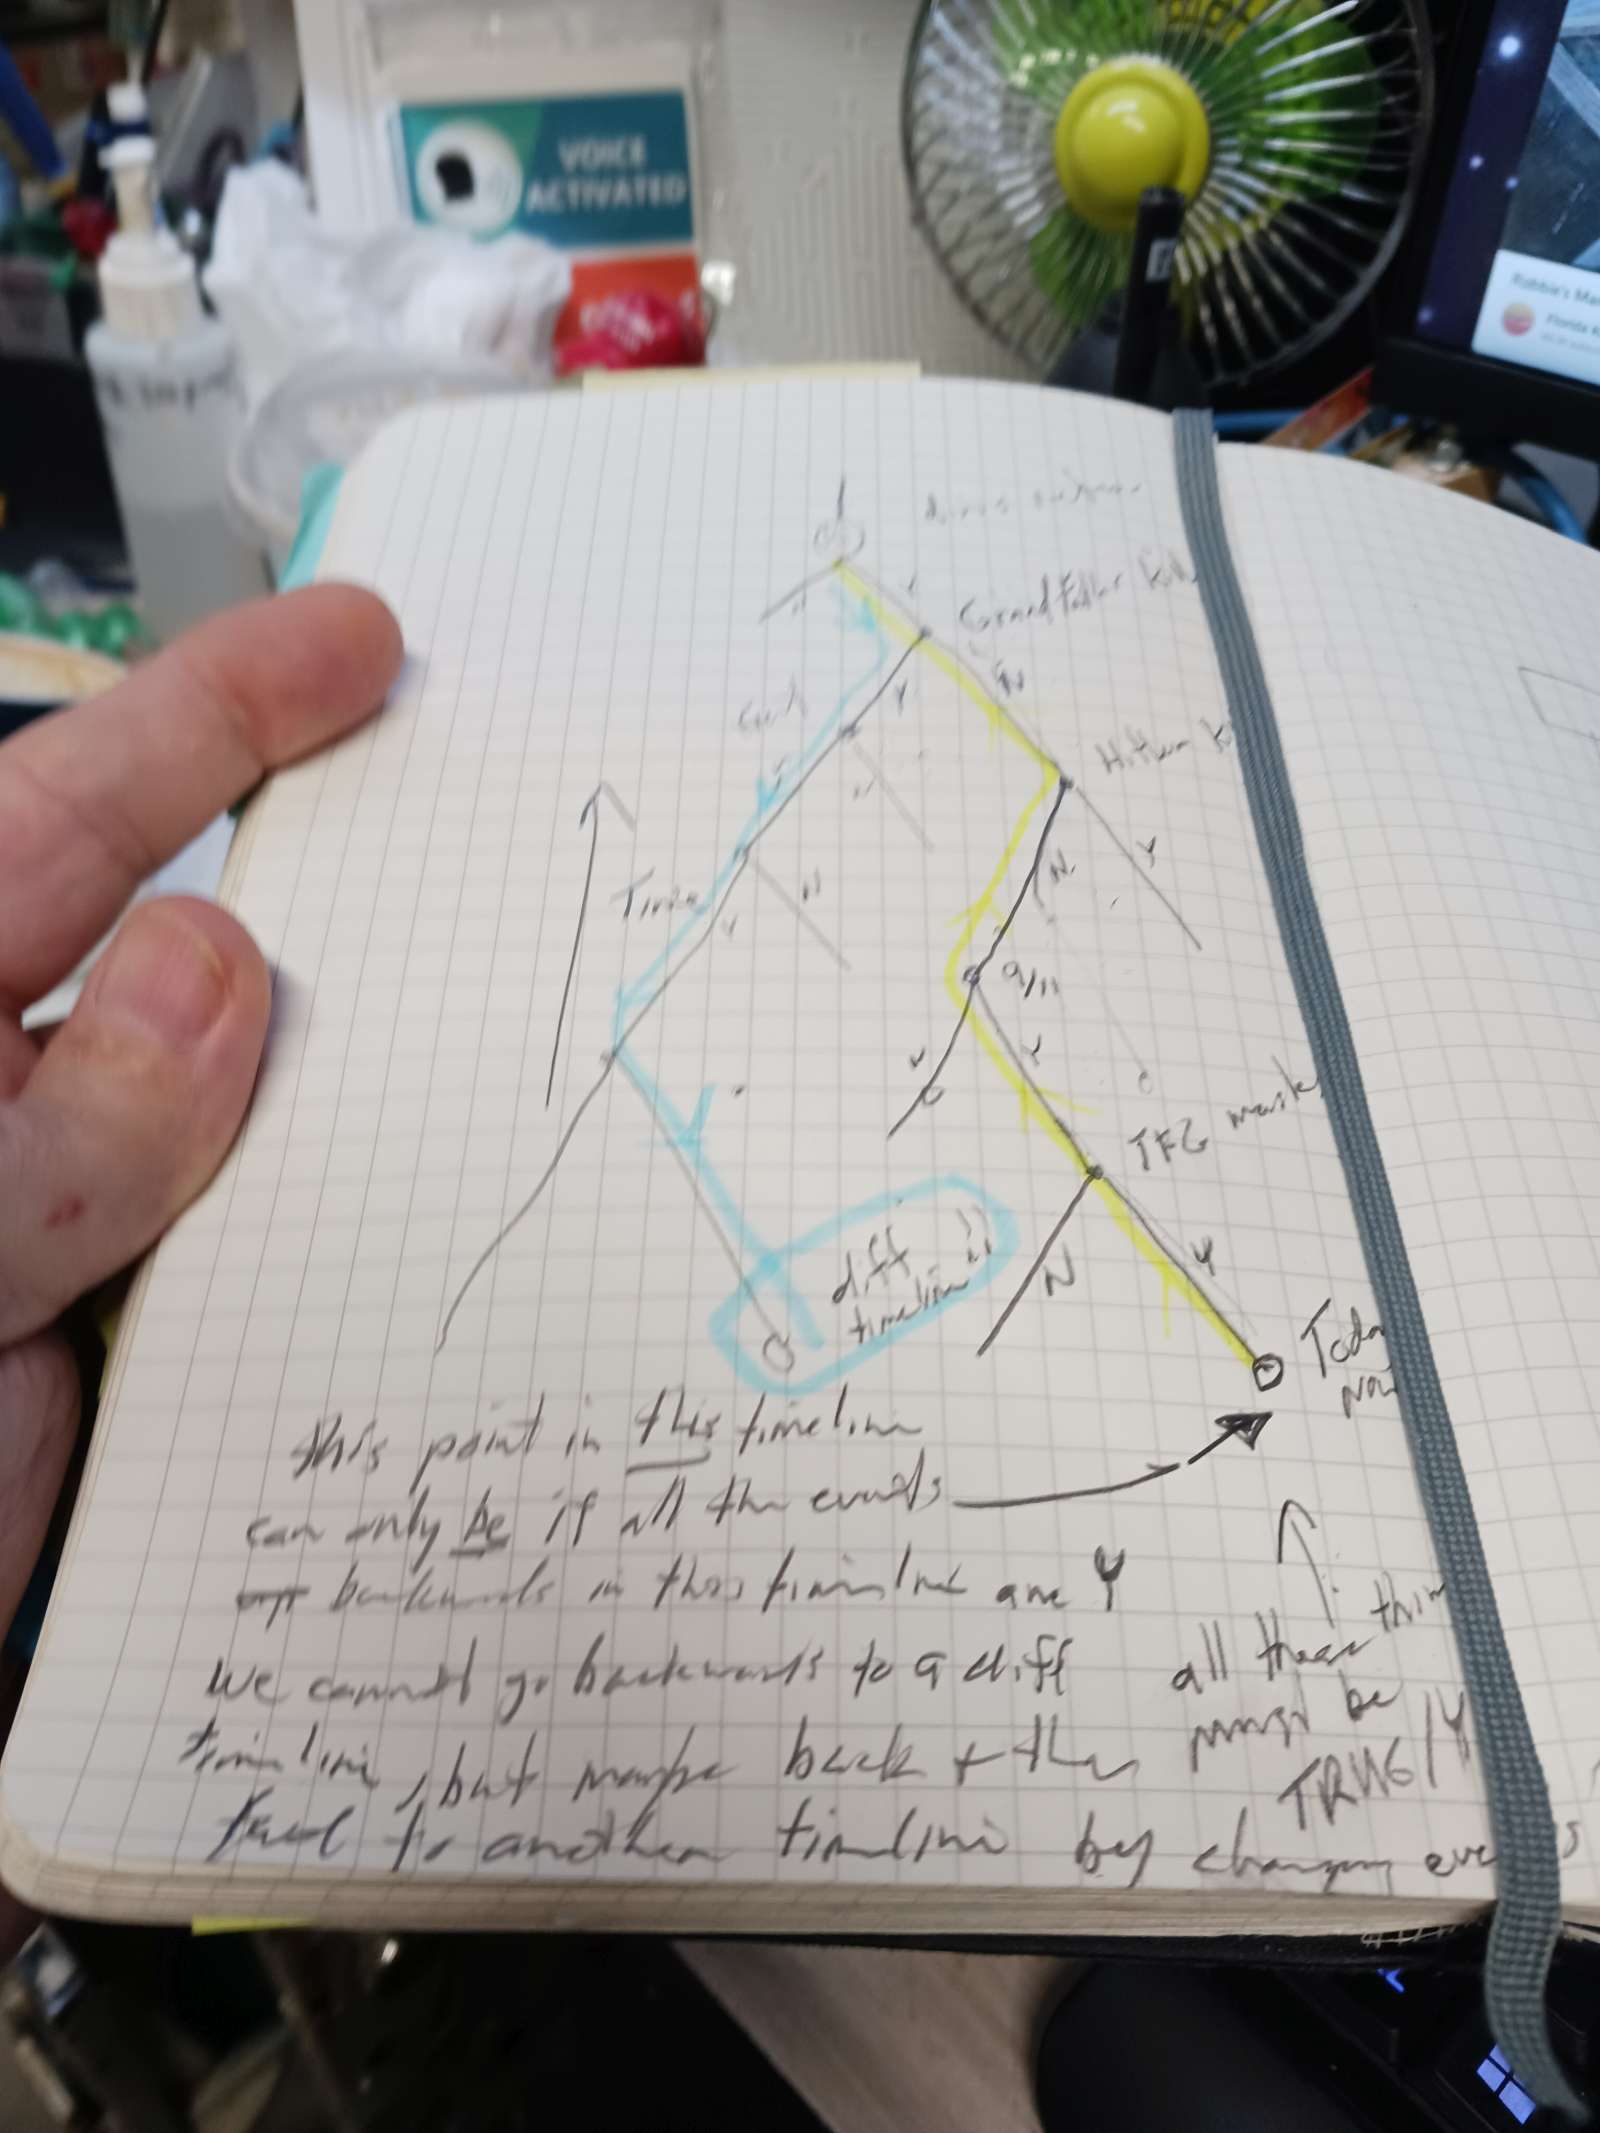 VOICE
ACTIVATED
Robbie's Ma
Florida K
Grandfather kill
Y
N
Y
N
Y
N
Time
N
Y
9/11
Y
N
Y
diff
timeline
Today
now
this point in this timeline
can only be if all the events
backwards in this timeline are Y
We cannot go backwards to a diff
timeline, but maybe back + then
to another timeline by changing eve s
all these thin
must be
TRUE/Y